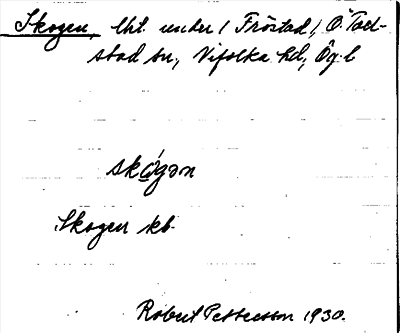 Skogen, lht under 1 Fröstad, Ö. Tol-
stad sn, Vifolka hd, Ög. l
skógən
Skogen kb.
Robert Pettersson 1930.